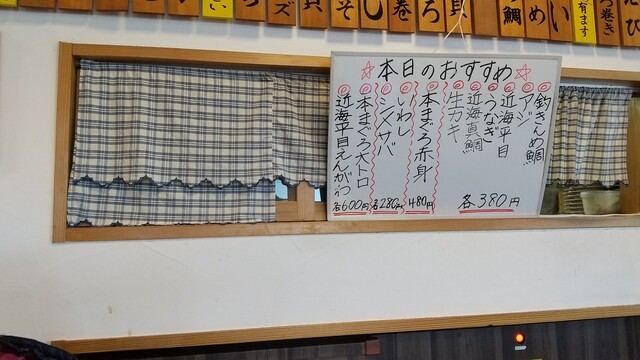 ☆本日のおすすめ☆
◎釣きんめ鯛
◎アジ
◎近海平目
◎うなぎ
◎近海真鯛
◎生カキ
各380円
◎本まぐろ赤身
480円
◎いわし
◎シメサバ
各280円
◎本まぐろ大トロ
◎近海平目えんがわ
各600円